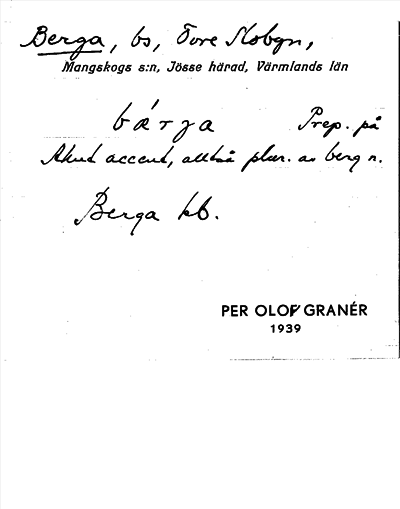 Berga, bs, Tore Skbgn,
Mangskogs s:n, Jösse härad, Värmlands län
bárga Prep. på
Akut accent, alltså plur. av berg n.
Berga kb.
PER OLOF GRANÉR
1939